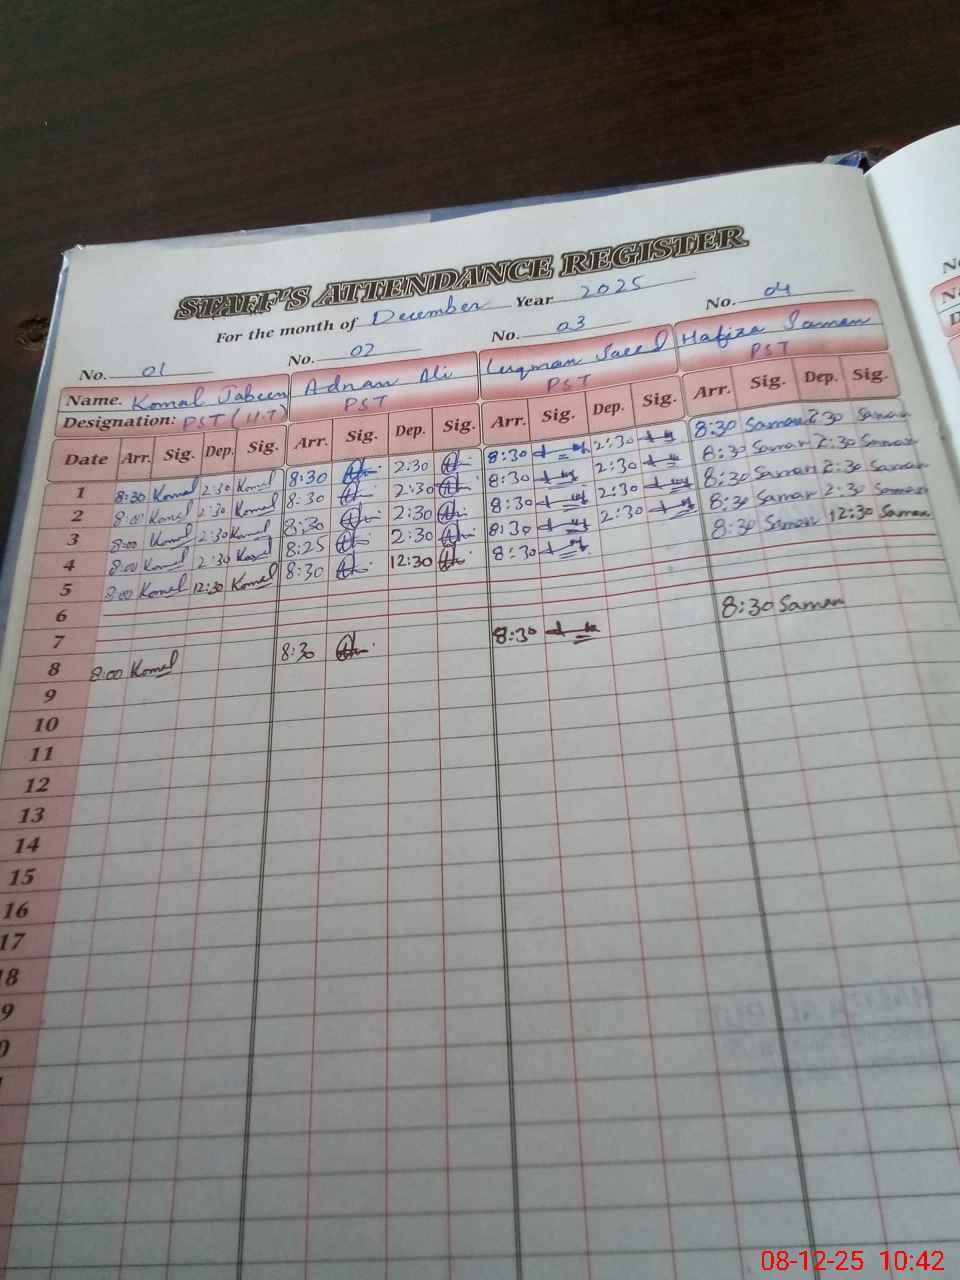 STAFF'S ATTENDANCE REGISTER
For the month of December Year 2025
No. 01 No. 02 No. 03 No. 04
Name. Komal Jabeen Adnan Ali Luqman Saeed Hafiza Saman
Designation: PST (H.T) PST PST PST
Date Arr. Sig. Dep. Sig. Arr. Sig. Dep. Sig. Arr. Sig. Dep. Sig. Arr. Sig. Dep. Sig.
1 8:30 Komal 2:30 Komal 8:30 2:30 8:30 2:30 8:30 Saman 2:30 Saman
2 8:00 Komal 2:30 Komal 8:30 2:30 8:30 2:30 8:30 Saman 2:30 Saman
3 8:00 Komal 2:30 Komal 8:30 2:30 8:30 2:30 8:30 Saman 2:30 Saman
4 8:00 Komal 2:30 Komal 8:25 2:30 8:30 2:30 8:30 Saman 2:30 Saman
5 8:00 Komal 12:30 Komal 8:30 12:30 8:30 8:30 Saman 12:30 Saman
6
7
8 8:00 Komal 8:30 8:30 8:30 Saman
9
10
11
12
13
14
15
16
17
18
9
0
08-12-25 10:42